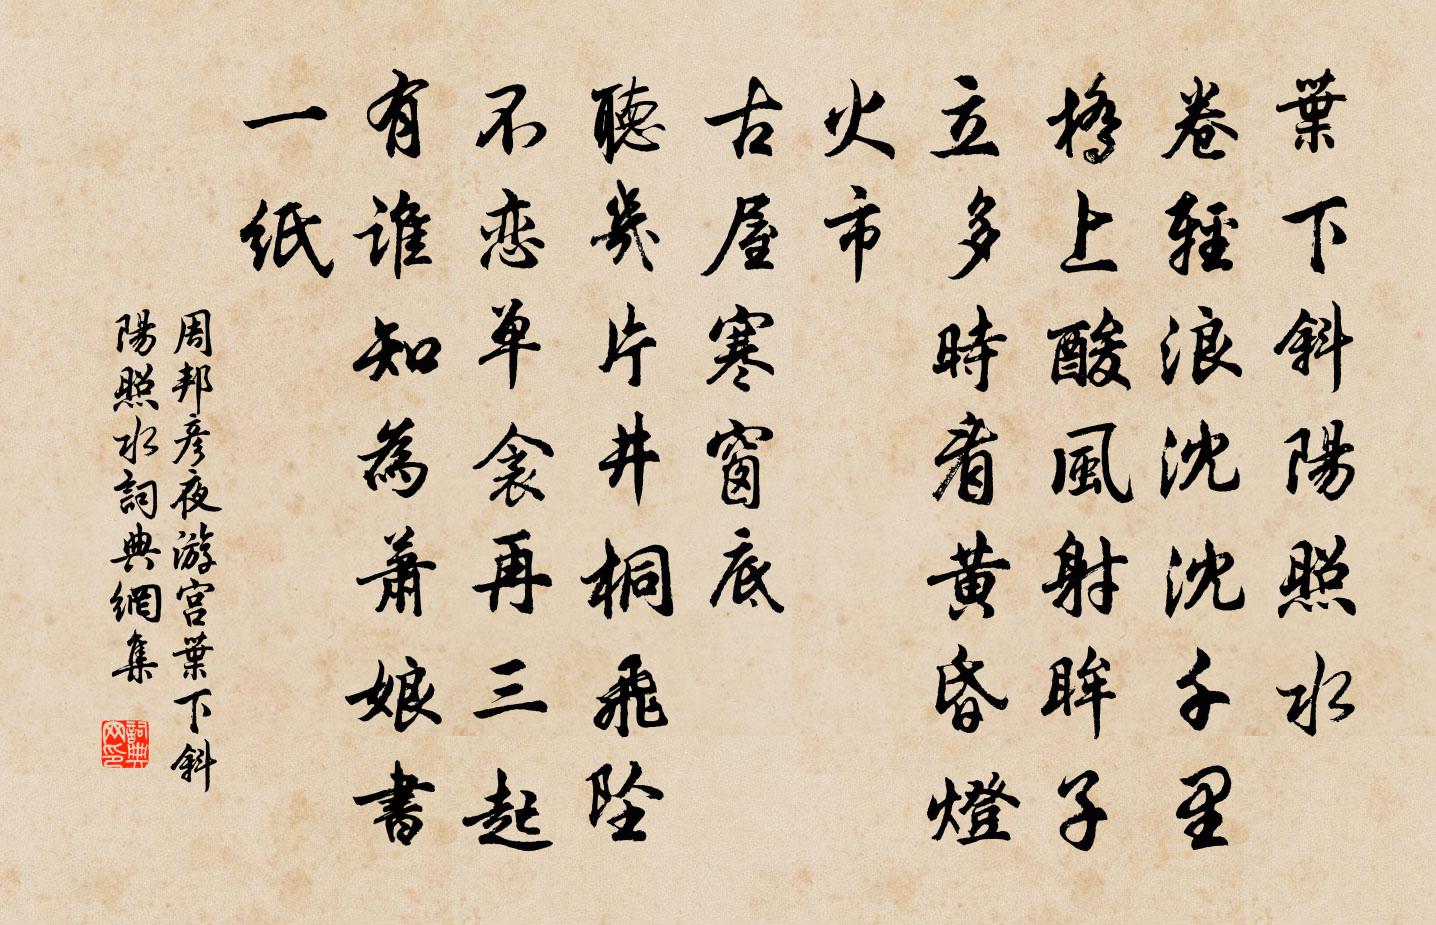 葉下斜陽照水
卷輕浪沈沈千里
橋上酸風射眸子
立多時看黃昏燈
火市
古屋寒窗底
聽幾片井桐飛坠
不恋单衾再三起
有誰知為蕭娘書
一紙
周邦彦夜游宮葉下斜
陽照水詞典網集
詞典
网印